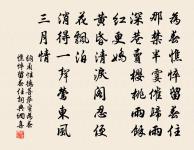 為春憔悴留春住
那禁半霎催歸雨
深巷賣櫻桃雨餘
紅更嬌
黃昏清淚閣忍便
花飄泊
消得一聲鶯東風
三月情
納蘭性德菩薩蠻為春
憔悴留春住詞典網書